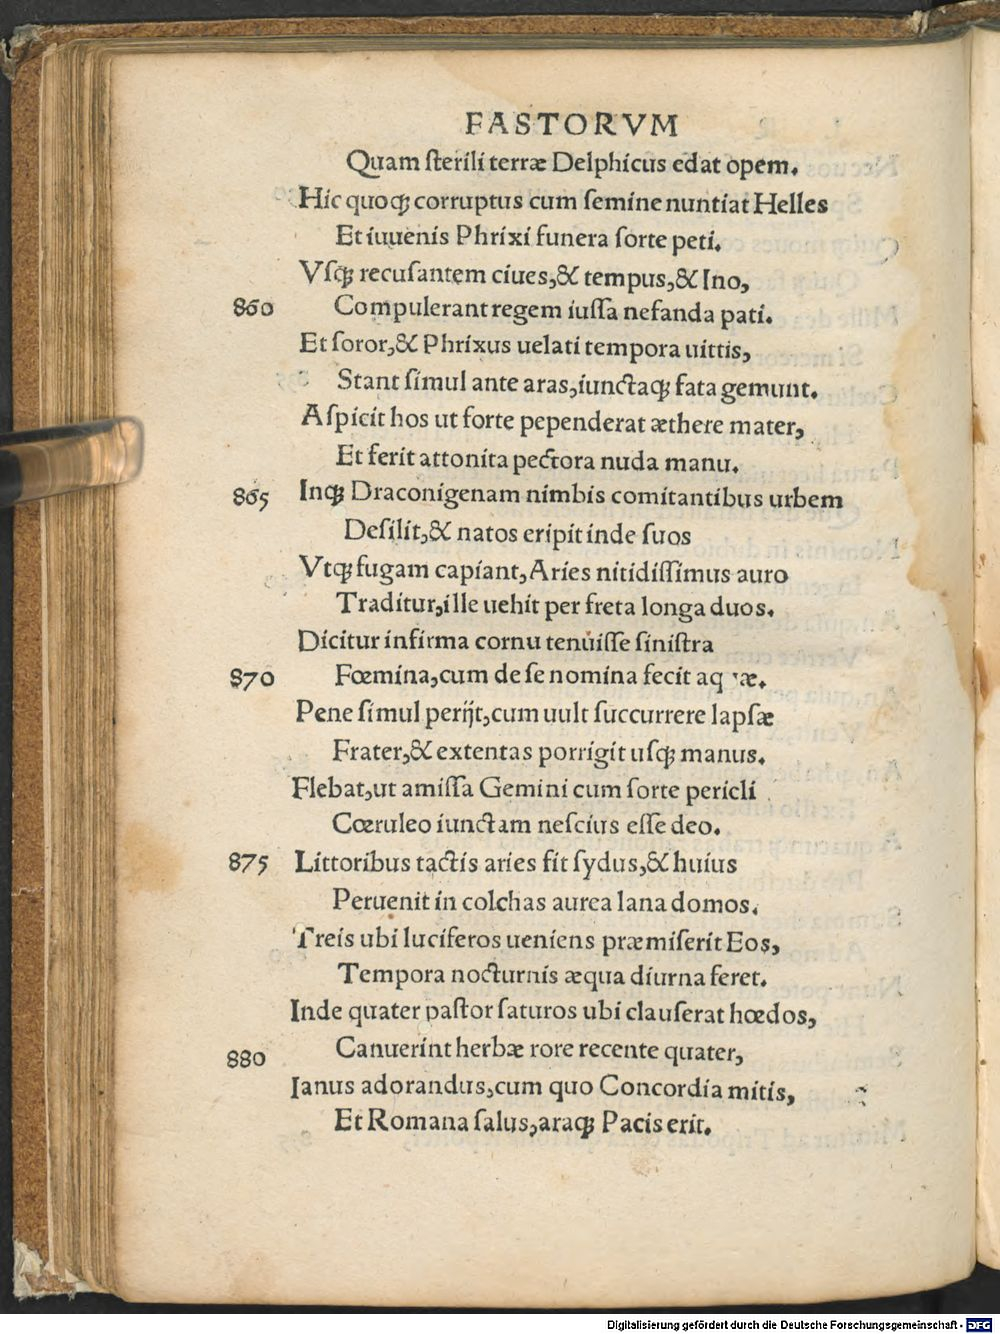 FASTORVM
Quam ſterili terræ Delphicus edat opem.
Hic quoqꝫ corruptus cum ſemine nuntiat Helles
Et iuuenis Phrixi funera ſorte peti.
Vſqꝫ recuſantem ciues,& tempus,& Ino,
860 Compulerant regem iuſſa nefanda pati.
Et ſoror,& Phrixus uelati tempora uittis,
Stant ſimul ante aras,iunctaqꝫ fata gemunt.
Aſpicit hos ut forte pependerat æthere mater,
Et ferit attonita pectora nuda manu.
865 Inqꝫ Draconigenam nimbis comitantibus urbem
Deſilit,& natos eripit inde ſuos
Vtqꝫ fugam capiant,Aries nitidiſſimus auro
Traditur,ille uehit per freta longa duos.
Dicitur infirma cornu tenuiſſe ſiniſtra
870 Fœmina,cum de ſe nomina fecit
Pene ſimul perijt,cum uult ſuccurrere lapſæ
Frater,& extentas porrigit uſqꝫ manus.
Flebat,ut amiſſa Gemini cum ſorte pericli
Cœruleo iunctam neſcius eſſe deo.
875 Littoribus tactis aries fit ſydus,& huius
Peruenit in colchas aurea lana domos.
Treis ubi luciferos ueniens præmiſerit Eos,
Tempora nocturnis æqua diurna feret.
Inde quater paſtor ſaturos ubi clauſerat hœdos,
880 Canuerint herbæ rore recente quater,
Ianus adorandus,cum quo Concordia mitis,
Et Romana ſalus,araqꝫ Pacis erit.
Digitalisierung gefördert durch die Deutsche Forschungsgemeinschaft - DFG